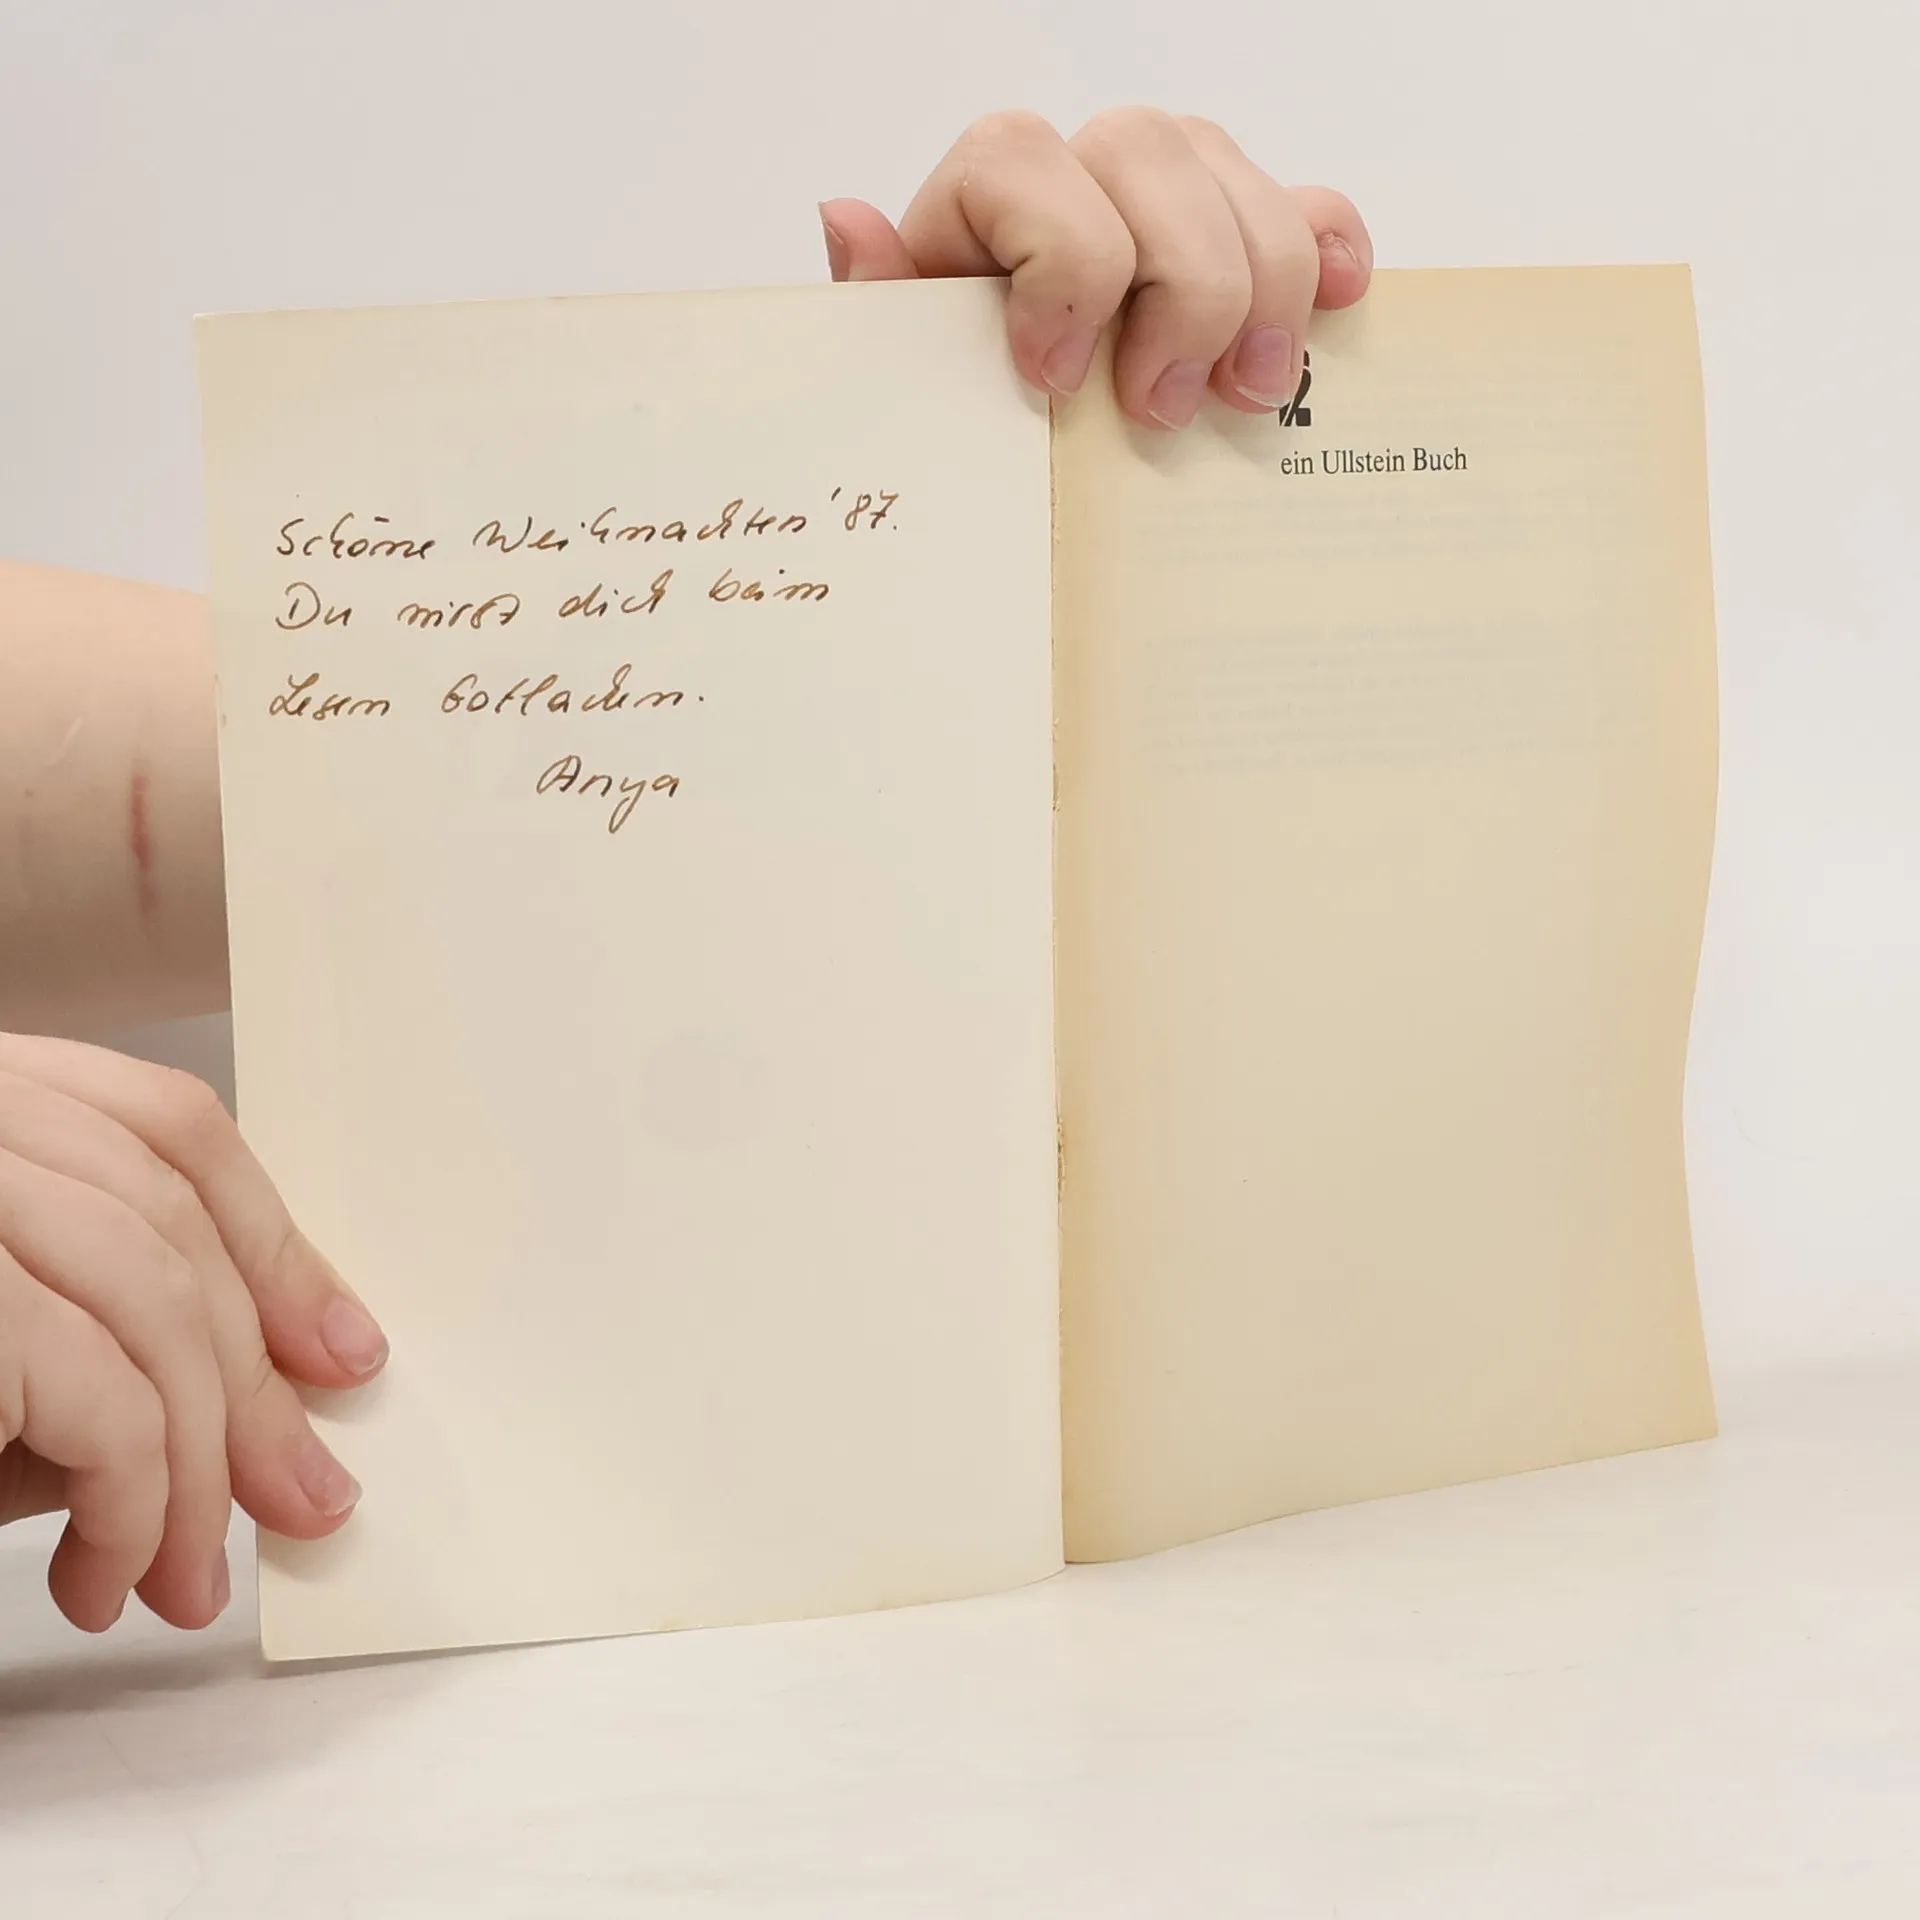 Schöne Weihnachten '87.
Du wirst dich beim
Lesen totlachen.
Anya
ein Ullstein Buch